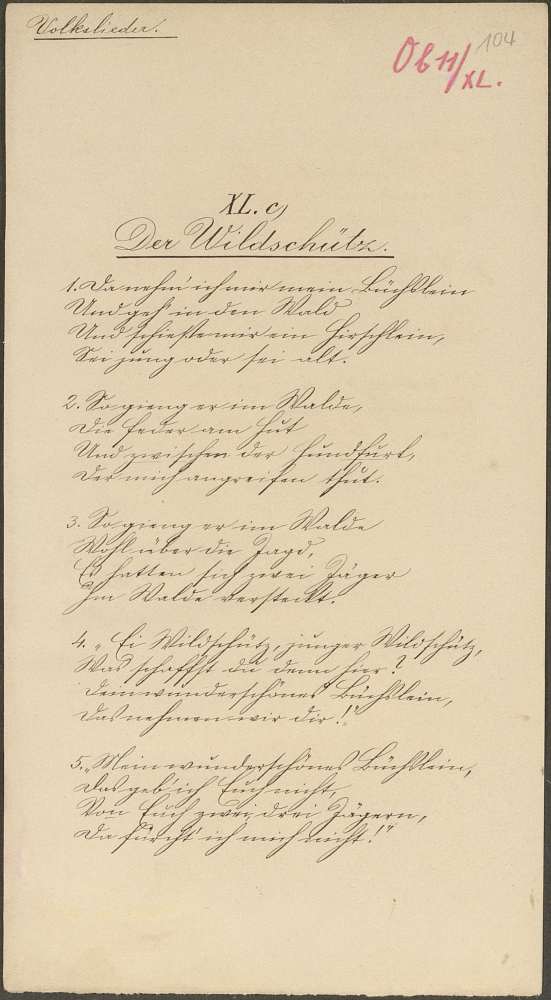 Volkslieder.
Ob 11/XL.
104
XL. c,
Der Wildschütz.
1. Da nehm' ich mir mein Büchslein
Und geh' in den Wald
Und schieße mir ein Hirschlein,
Sei jung oder sei alt.
2. So gieng er im Walde,
Die Feder am Hut
Und zwischen der
Der mich angreifen thut.
3. So gieng er im Walde
Wohl über die Jagd,
Es hatten sich zwei Jäger
Im Walde versteckt.
4. „Ei Wildschütz, junger Wildschütz,
Was schaffst du denn hier?
Dein wunderschönes Büchslein,
Das nehmen wir dir!"
5. „Mein wunderschönes Büchslein,
Das geb ich Euch nicht,
Von Euch zwei, drei Jägern,
Da fürcht' ich mich nicht!"